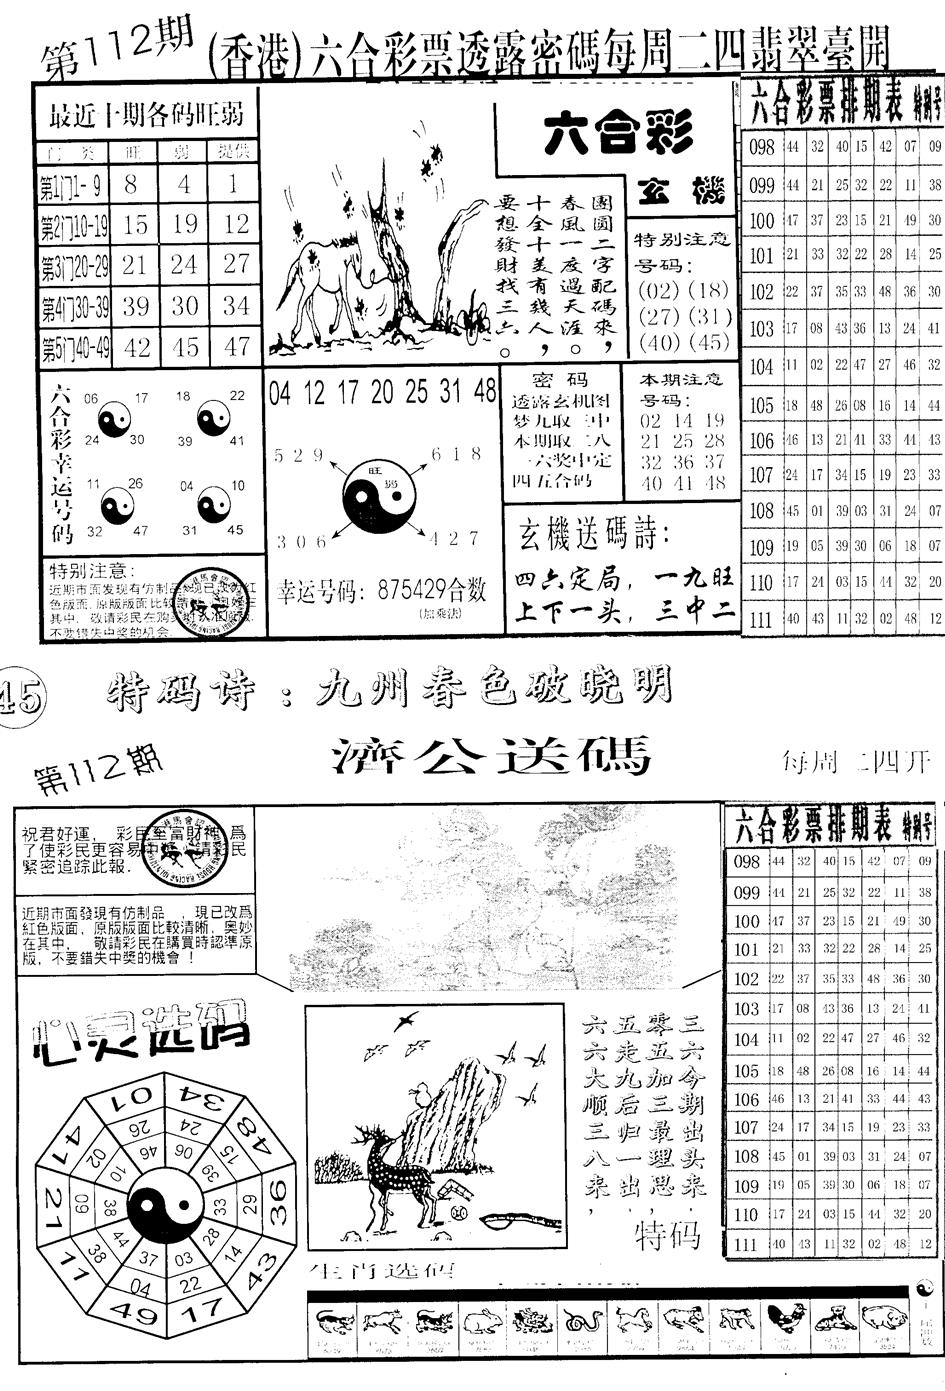 第112期
(香港)六合彩票透露密碼每周二四翡翠臺開
最近十期各码旺弱
门 类 旺 弱 提供
第1门1-9 8 4 1
第2门10-19 15 19 12
第3门20-29 21 24 27
第4门30-39 39 30 34
第5门40-49 42 45 47
六合彩
玄機
團圓二字配碼來，
春風一度過天涯。
十全十美有幾人，
要想發財找三六。
特别注意
号码：
(02) (18)
(27) (31)
(40) (45)
六合彩票排期表 特别号
098 44 32 40 15 42 07 09
099 44 21 25 32 22 11 38
100 47 37 23 15 21 49 30
101 21 33 32 22 28 14 25
102 22 37 35 33 48 36 30
103 17 08 43 36 13 24 41
104 11 02 22 47 27 46 32
105 18 48 26 08 16 14 44
106 46 13 21 41 33 44 43
107 24 17 34 15 19 23 33
108 45 01 39 03 31 24 07
109 19 05 39 30 06 18 07
110 17 24 03 15 44 32 20
111 40 43 11 32 02 48 12
六合彩幸运号码
06 17 18 22
24 30 39 41
11 26 04 10
32 47 31 45
特别注意：
近期市面发现有仿制品
色版面，原版版面比较
其中，敬请彩民在购
不要错失中奖的机会
04 12 17 20 25 31 48
529 618
旺
弱
306 427
幸运号码：875429合数
(加乘法)
密码
透露玄机图
梦九取三中
本期取二八
一六奖中定
四五合码
本期注意
号码：
02 14 19
21 25 28
32 36 37
40 41 48
玄機送碼詩：
四六定局，一九旺
上下一头，三中二
45
特码诗：九州春色破晓明
第112期
濟公送碼
每周二四开
祝君好運，彩民至富財神 爲
了使彩民更容易中 請彩民
緊密追踪此報．
近期市面發現有仿制品 ，現已改爲
紅色版面，原版版面比較清晰，奥妙
在其中， 敬請彩民在購買時認準原
版，不要錯失中獎的機會！
心灵选码
01 34 48 36 43 17 49 11 21 41
26 24 15 29 14 22 04 38 09 02
46 06 39 33 28 03 37 44 38 10
三六今期出头来，
零五加三最理思，
五走九后归一出，
六六大顺三八来，
特码
六合彩票排期表 特别号
098 44 32 40 15 42 07 09
099 44 21 25 32 22 11 38
100 47 37 23 15 21 49 30
101 21 33 32 22 28 14 25
102 22 37 35 33 48 36 30
103 17 08 43 36 13 24 41
104 11 02 22 47 27 46 32
105 18 48 26 08 16 14 44
106 46 13 21 41 33 44 43
107 24 17 34 15 19 23 33
108 45 01 39 03 31 24 07
109 19 05 39 30 06 18 07
110 17 24 03 15 44 32 20
111 40 43 11 32 02 48 12
生肖选码